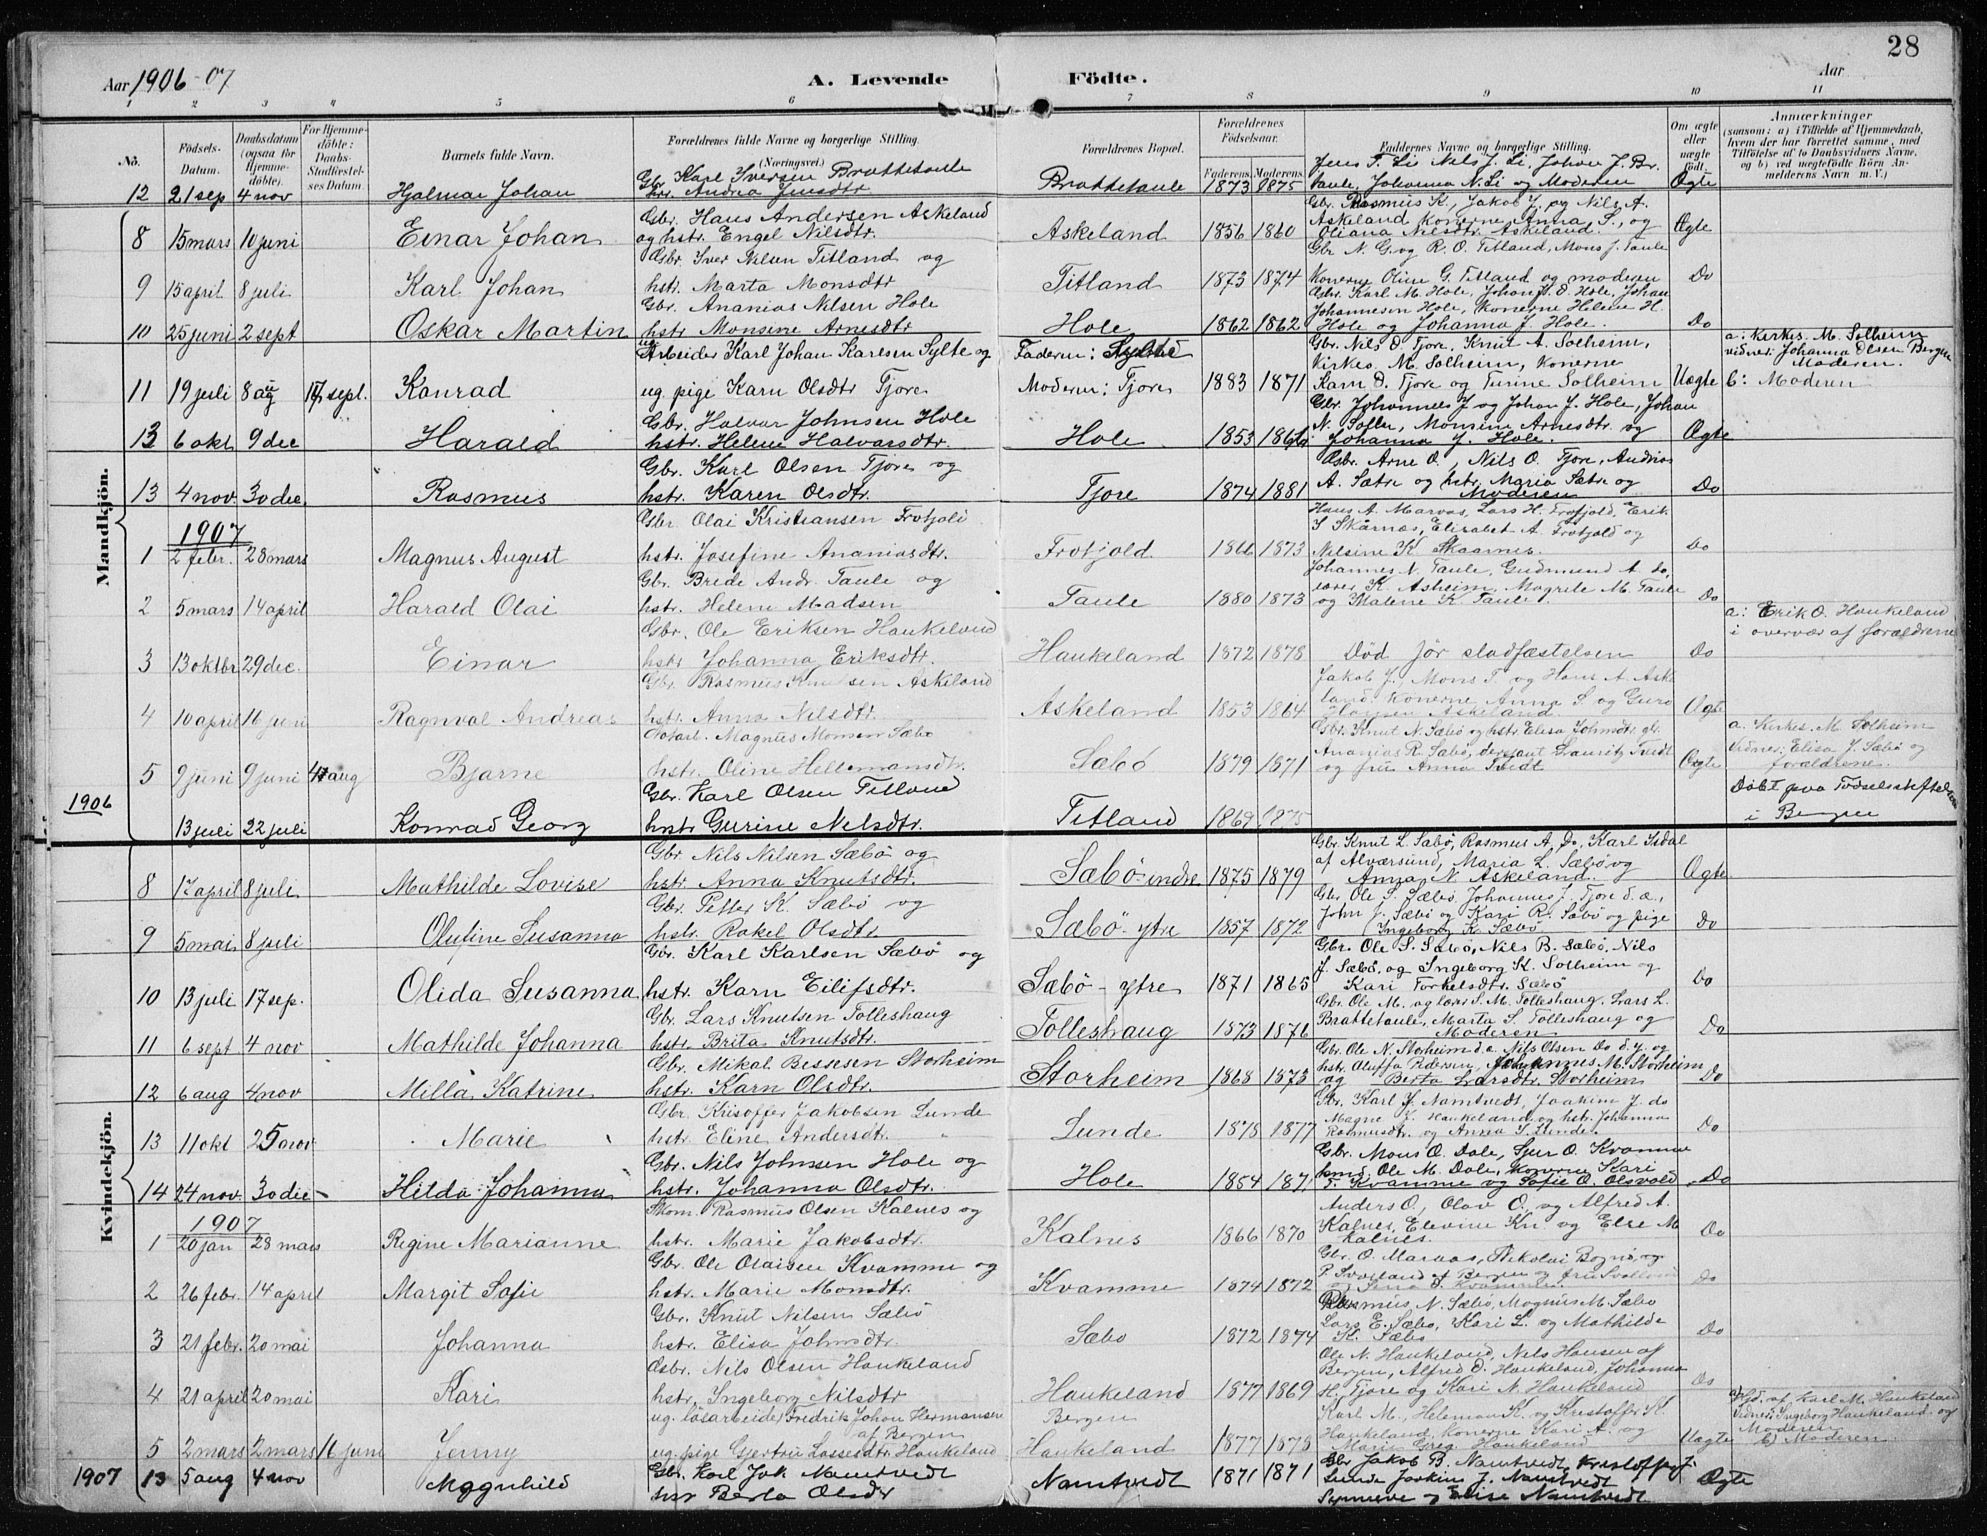 28
Aar 1906-07 A. Levende Födte. Aar
1 2 3 4 5 6 7 8 9 10 11
No. Födsels-Datum. Daabsdatum (ogsaa for Hjemmedöbte). For Hjemmedöbte: Daabs-Stadfæstelses Datum. Barnets fulde Navn. Forældrenes fulde Navne og borgerlige Stilling. (Næringsvei) Forældrenes Bopæl. Forældrenes Födselsaar. Faderens Moderens Faddernes Navne og borgerlige Stilling. Om ægte eller uægte födt. Anmærkninger (saasom: a) i Tilfælde af Hjemmedaab, hvem der har forrettet samme, med Tilföielse af to Daabsvidners Navne, og b) ved uægtefödte Börn Anmelderens Navn m. V.)
Mandkjön.
Gbr. Karl Iversen Brattetaule Jens T. Li Nils J. Li, Johan J. Brattaule, Johanna N. Li og Moderen
12 21 sep 4 nov Hjalmar Johan hst. Andrea Jensdtr Brattetaule 1873 1875 Ægte
Gbr. Hans Andersen Askeland Gbr. Rasmus K., Jakob J. og Nils A.
8 15 mars 10 juni Einar Johan og hstr. Engel Nilsdtr. Askeland 1856 1860 Askeland, konerne Anna S., og Oliana Nilsdtr. Askeland. Ægte
Gbr. Iver Nilsen Titland og Gbr N. G. og R. O. Titland, Mons J. Taule
9 15 april 8 juli Karl Johan hstr. Marta Monsdtr Titland 1873 1874 Konerne Oline G. Titland og moderen Do
Gbr. Ananias Nilsen Hole Gbr. Karl M. Hole, Johan O. Hole, Johan Johannesen Hole, Konerne Helene H.
10 25 juni 2 sept Oskar Martin hstr Monsine Arnesdtr Hole 1862 1862 Hole og Johanna J. Hole. Do
ug Arbeider Karl Johan Karlsen Sylte og Faderen: Sylte Gbr. Nils O. Tjore, Knut A. Solheim, Kirkes. M. Solheim, Konerne a: Kerkes. M. Solheim vidner: Johanna Olsen Bergen Moderen.
11 19 juli 8 aug 17 sept. Konrad ug. pige Karn Olsdtr Tjore Moderen: Tjore 1883 1871 Karn O. Tjore og Turine Solheim Uægte b: Moderen
Gbr. Halvar Johnsen Hole Gbr. Johannes J. og Johan J. Hole, Johan
13 6 okt 9 dec Harald hstr. Helene Halvarsdtr. Hole 1853 N. Soltu, Monsine Arnesdtr. og Johanna J. Hole. Ægte
Gbr. Karl Olsen Tjore og Gbr. Arne O., Nils O. Tjore, Andreas
13 4 nov. 30 dec. Rasmus hstr. Karen Olsdtr. Tjore 1874 1881 A. Sætre og hstr. Maria Sætre og Moderen Do
1907
Gbr Olai Kristiansen Frotjold Hans A. Marvas, Lars H. Frotjold, Erik S Skårnæs, Elisabet A. Frotjold og
1 2 febr. 28 mars Magnus August hstr. Josefine Ananiasdtr. Frotjold 1866 1873 Nilsine K Skaarnes. Do
Gbr. Brede Andr. Taule og Johannes N. Taule, Gudmund A. do,
2 5 mars 14 april Harald Olai hstr. Helene Madsen Taule 1880 1873 lærer K. Asheim, Magrete M. Taule og Malene K. Taule. Do
Gbr. Ole Eriksen Haukeland a: Erik O. Haukeland i overvær af forældrene
3 13 oktbr 29 dec. Einar hstr Johanna Eriksdtr. Haukeland 1872 1878 Död för stadfæstelsen Do
Gbr. Rasmus Knutsen Askeland Jakob J., Mons T. og Hans A. Askeland,
4 10 april 16 juni Ragnval Andreas hstr. Anna Nilsdtr. Askeland 1853 1864 Konerne Anna S. og Guro Askeland. Ægte
Magnus Monsen Sæbø Gbr. Knut N. Sæbø og hstr. Elisa Johnsdtr. a. Kerkes. M. Solheim Vidner: Elisa J. Sæbø og forældrene.
5 9 juni 9 juni aug Bjarne hstr. Oline Hellemansdtr. Sæbö 1879 1871 Ananias R. Sæbø, dersjant Lauritz Tvedt og fru Anna Tvedt Ægte
1906 Gbr. Karl Olsen Titland Döbt paa Fødselsstiftelsen i Bergen
13 juli 22 juli Konrad Georg hstr Gurine Nilsdtr. Titland 1869 1875
Kvindekjön.
Gbr Nils Nilsen Sæbø og Gbr. Knut L. Sæbø, Rasmus A. Do, Karl Isdal
8 17 april 8 juli Mathilde Lovise hstr. Anna Knutsdtr. Sæbö indre 1875 1879 af Alværsund, Maria L. Sæbø og Anna N. Askeland. Ægte
Gbr. Petter K. Sæbø og Gbr. Ole S. Sæbø, Johannes J. Tjore d. æ.,
9 5 mai 8 juli Olufine Susanna hstr. Rakel Olsdtr Sæbö ytre 1857 1872 John J. Sæbø og Kari R. Sæbø og pige Ingeborg K. Sæbø Do
Gbr. Karl Karlsen Sæbø og Gbr. Ole S. Sæbø, Nils B. Sæbø, Nils
10 13 juli 17 sep. Olida Susanna hstr. Karn Eilifsdtr. Sæbö - ytre 1871 1865 J. Sæbø, og Ingeborg K. Solheim og Kari Torkelsdtr. Sæbø Do
Gbr. Lars Knutsen Tolleshaug Gbr. Ole M. og lærer S. M. Tolleshaug, Lars L.
11 6 sept 4 nov Mathilde Johanna hstr. Brita Knutsdtr. Tolleshaug 1873 1876 Brattetaule, Marta S. Tolleshaug og Moderen Do
Gbr. Mikal Bessesen Storheim Gbr. Ole N. Storheim d. æ. Nils Olsen Do d. y. og
12 6 aug 4 nov Milla Katrine hstr. Karn Olsdtr. Storheim 1868 1873 hstr. Oluffa Pedersen, Johannes M. Storheim og Berta Larsdtr. Storheim Do
Gbr. Krisoffer Jakobsen Lunde Gbr. Karl J. Namtvedt, Joakim J. do
13 11 okt 25 nov Marie hstr. Eline Andersdtr. Lunde 1878 1877 Magne K. Haukeland og hstr. Johanna Rasmusdtr. og Anna J. Lunde Do
Gbr. Nils Johnsen Hole og Gbr. Mons O. Dale, Sjur O. Kvamme
14 24 nov. 30 dec Hilda Johanna hstr. Johanna Olsdtr. Hole 1854 187 Ole M. Dale, Konerne Kari T. Kvamme og Sofie O. Olsvold Do
1907
Skom. Rasmus Olsen Kalnes og Anders O., Olav O. og Alfred A.
1 20 jan 28 mars Regine Marianne hstr. Marie Jakobsdtr. Kalnes 1866 1870 Kalnes, Elevine Kn. og Else M Kalnes. Do
Gbr. Ole Olaisen Kvamme og Gbr. O. Maraas, Nikolai Bognø og
2 26 febr. 14 april Margit Sofie hstr. Marie Monsdtr. Kvamme 1874 1872 Do
Gbr. Knut Nilsen Sæbø Rasmus N. Sæbø, Magnus M. Sæbø
3 21 febr. 20 mai Johanna hstr. Elisa Johnsdtr. Sæbø 1872 1874 Lars E. Sæbø, Kari L. og Mathilde K. Sæbø Do
Gbr. Nils Olsen Haukeland Ole N. Haukeland, Nils Hansen af
4 21 april 20 mai Kari hstr. Ingeborg Nilsdtr Haukeland 1877 1869 Bergen, Alfred O. Haukeland, Johanna H. Tjore og Kari N. Haukeland Do
ug. løsarbeider Fredrik Johan Hermansen af Bergen Bergen Karl M., Heleman K. og Kristoffer K. Hjd. af Karl M. Haukeland Vidner: Ingeborg Haukeland og Moderen
5 2 mars 2 mars 16 juni Jenny ug. pige Gjertru Lassesdtr. Haukeland Haukeland 1877 1878 Haukeland, Konerne Kari A. og Marie Greg. Haukeland Uægte b) Moderen
Gbr. Karl Joh. Namtvedt Gbr Jakob B. Namtvedt, Kristoffer J.
1907 13 5 aug 4 nov Magnhild hsr Berta Olsdr Namtvedt 1871 1871 Lunde Joakim J. Namtvedt Synneve og Elise Namtvedt Ægte